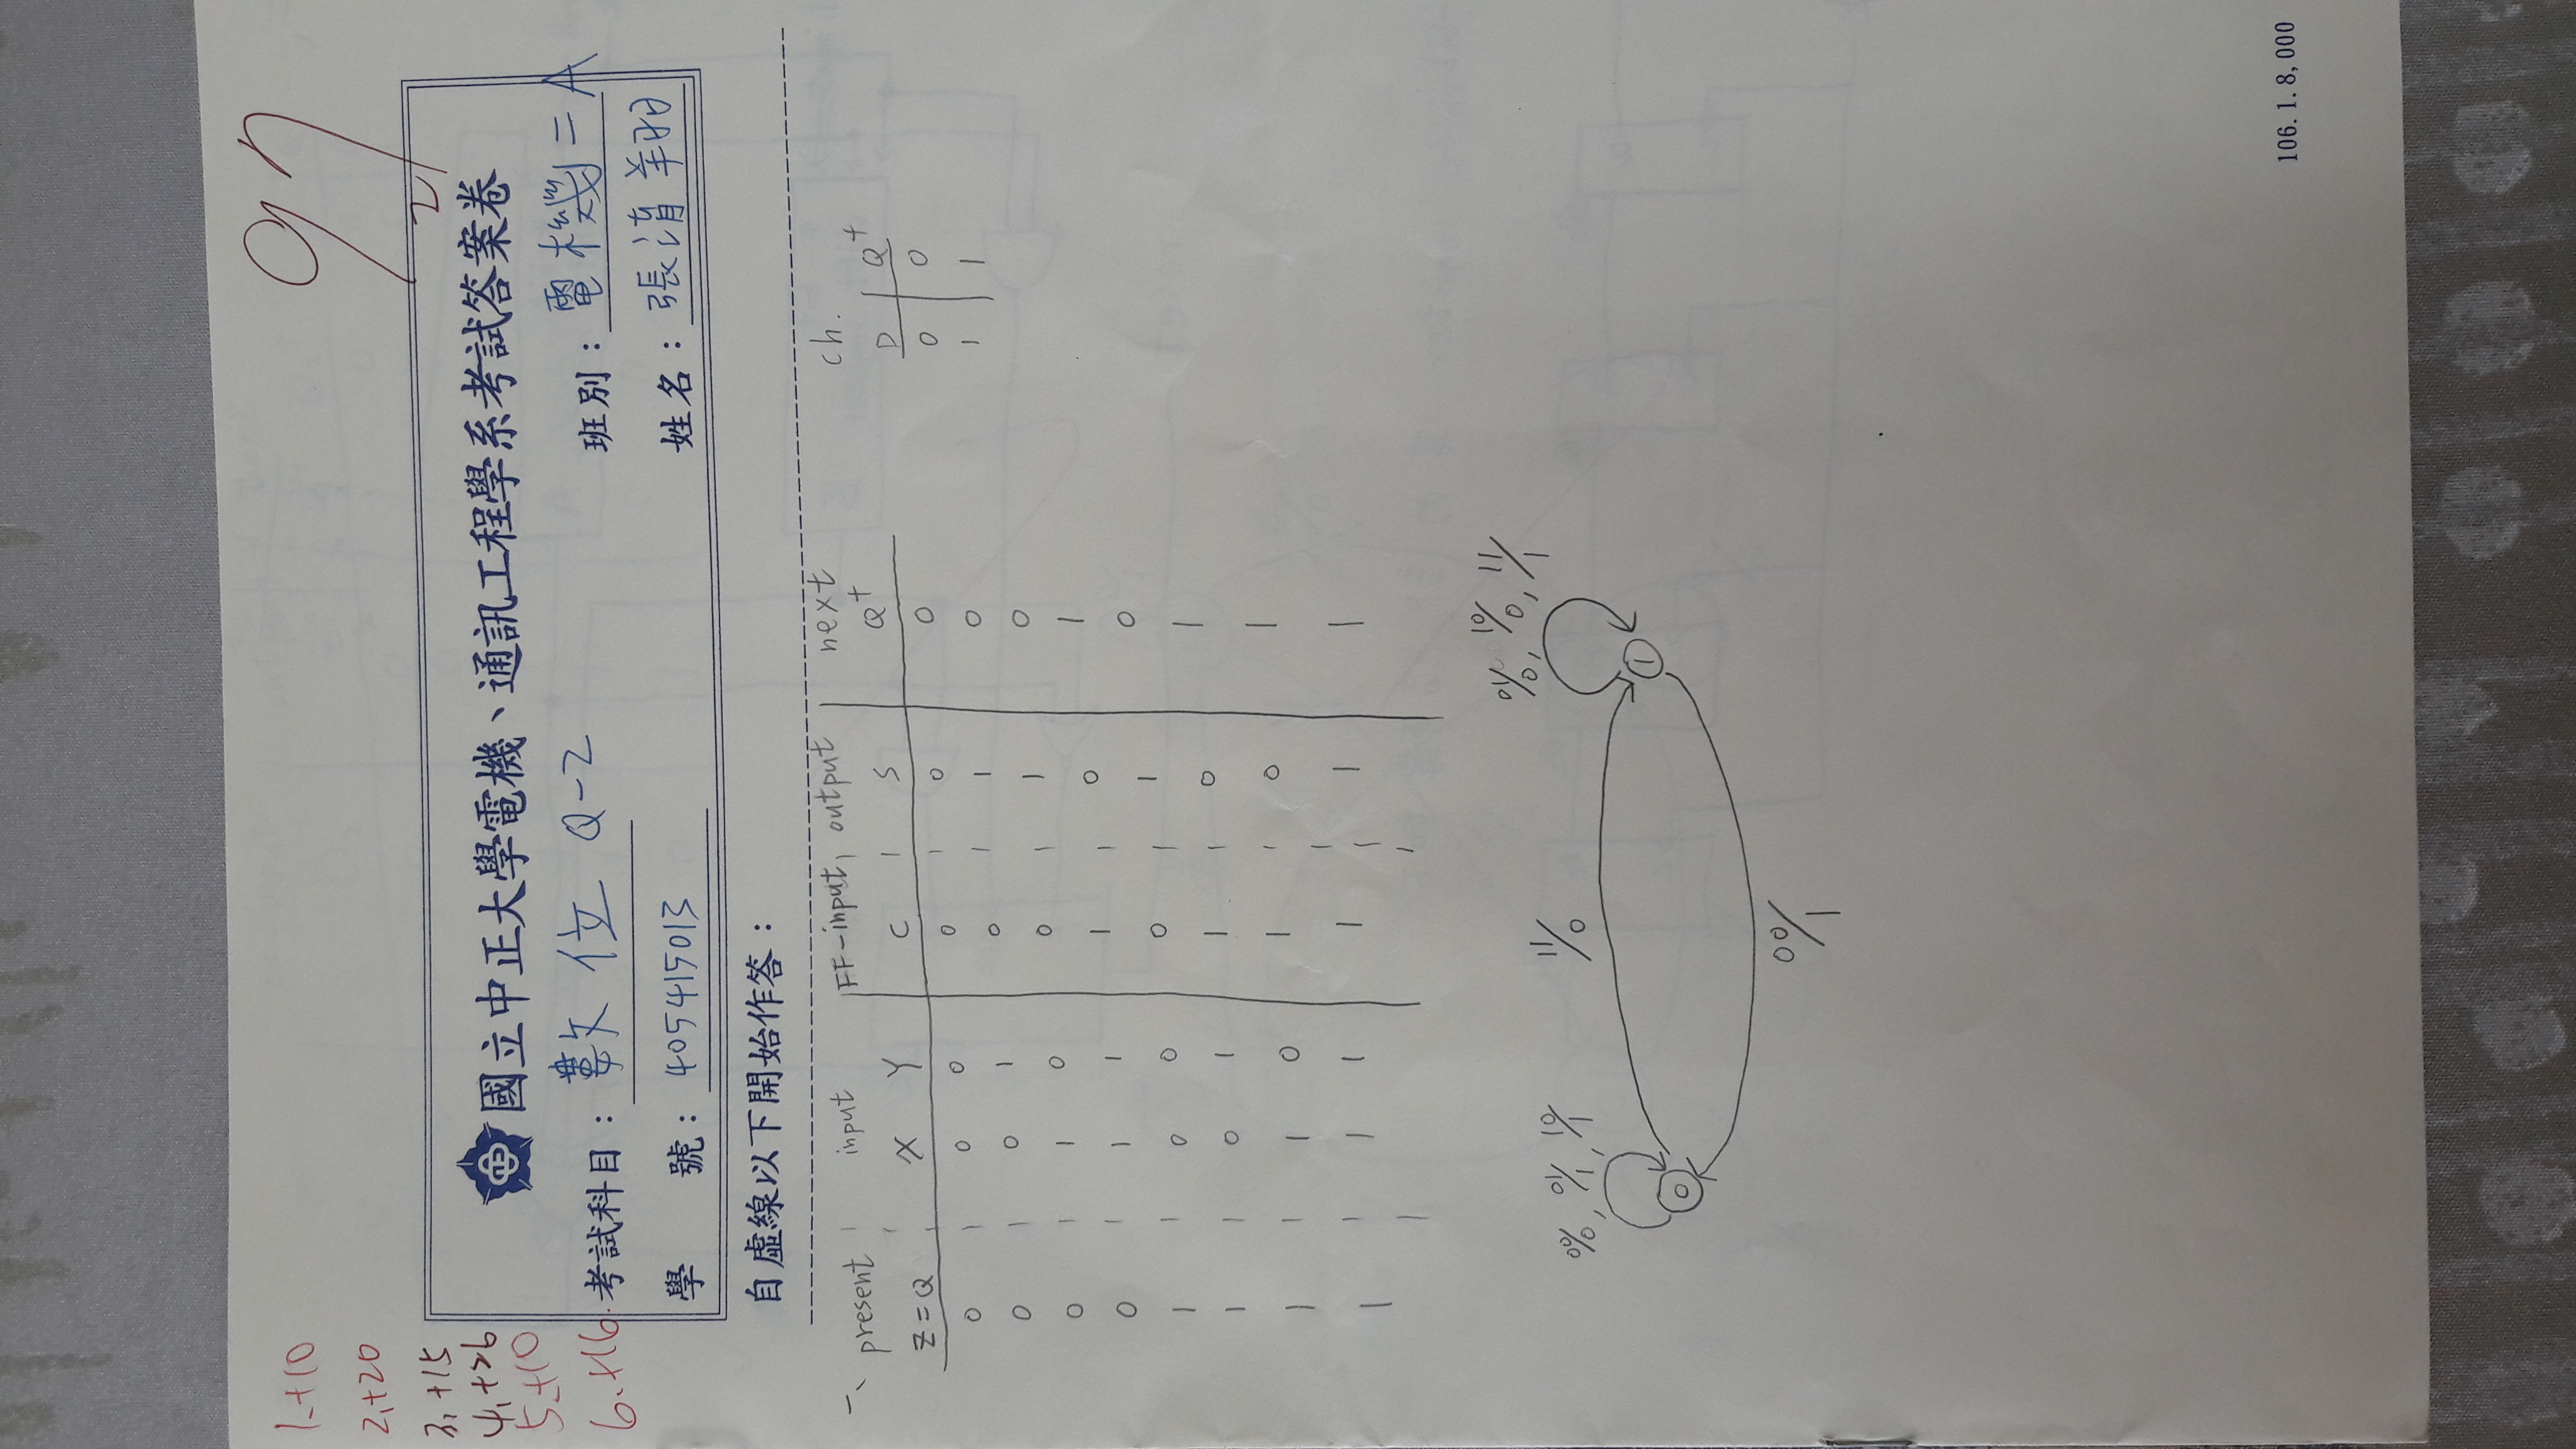 1.+10
2.+20
3.+15
4.+26
5.+10
6.+16
97
2
國立中正大學電機、通訊工程學系考試答案卷
考試科目:數位 Q-2
班別:電機二A
學 號:405415013
姓名:張清翔
自虛線以下開始作答:
一、 present input FF-input output next
Z=Q X Y C S Q+
0 0 0 0 0 0
0 0 1 0 1 0
0 1 0 0 1 0
0 1 1 1 0 1
1 0 0 0 1 0
1 0 1 1 0 1
1 1 0 1 0 1
1 1 1 1 1 1
ch.
D Q+
0 0
1 1
00/0, 01/1, 10/1
11/0
01/0, 10/0, 11/1
0
1
00/1
106.1.8,000